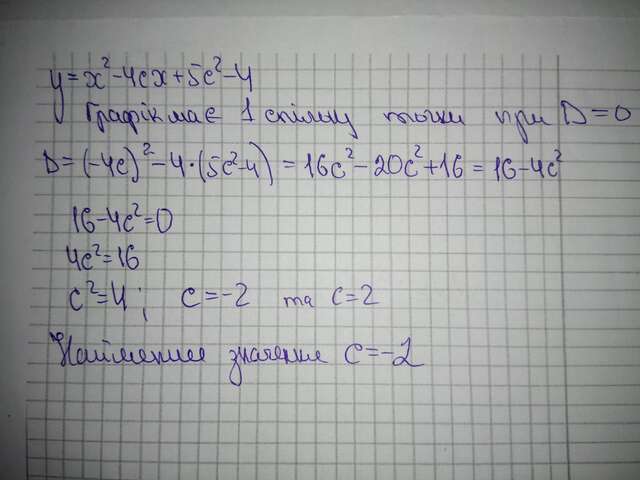 y=x²-4cx+5c²-4
Графік має 1 спільну точки при D=0
D=(-4c)²-4·(5c²-4)=16c²-20c²+16=16-4c²
16-4c²=0
4c²=16
c²=4; c=-2 та c=2
Найменшее значение c=-2